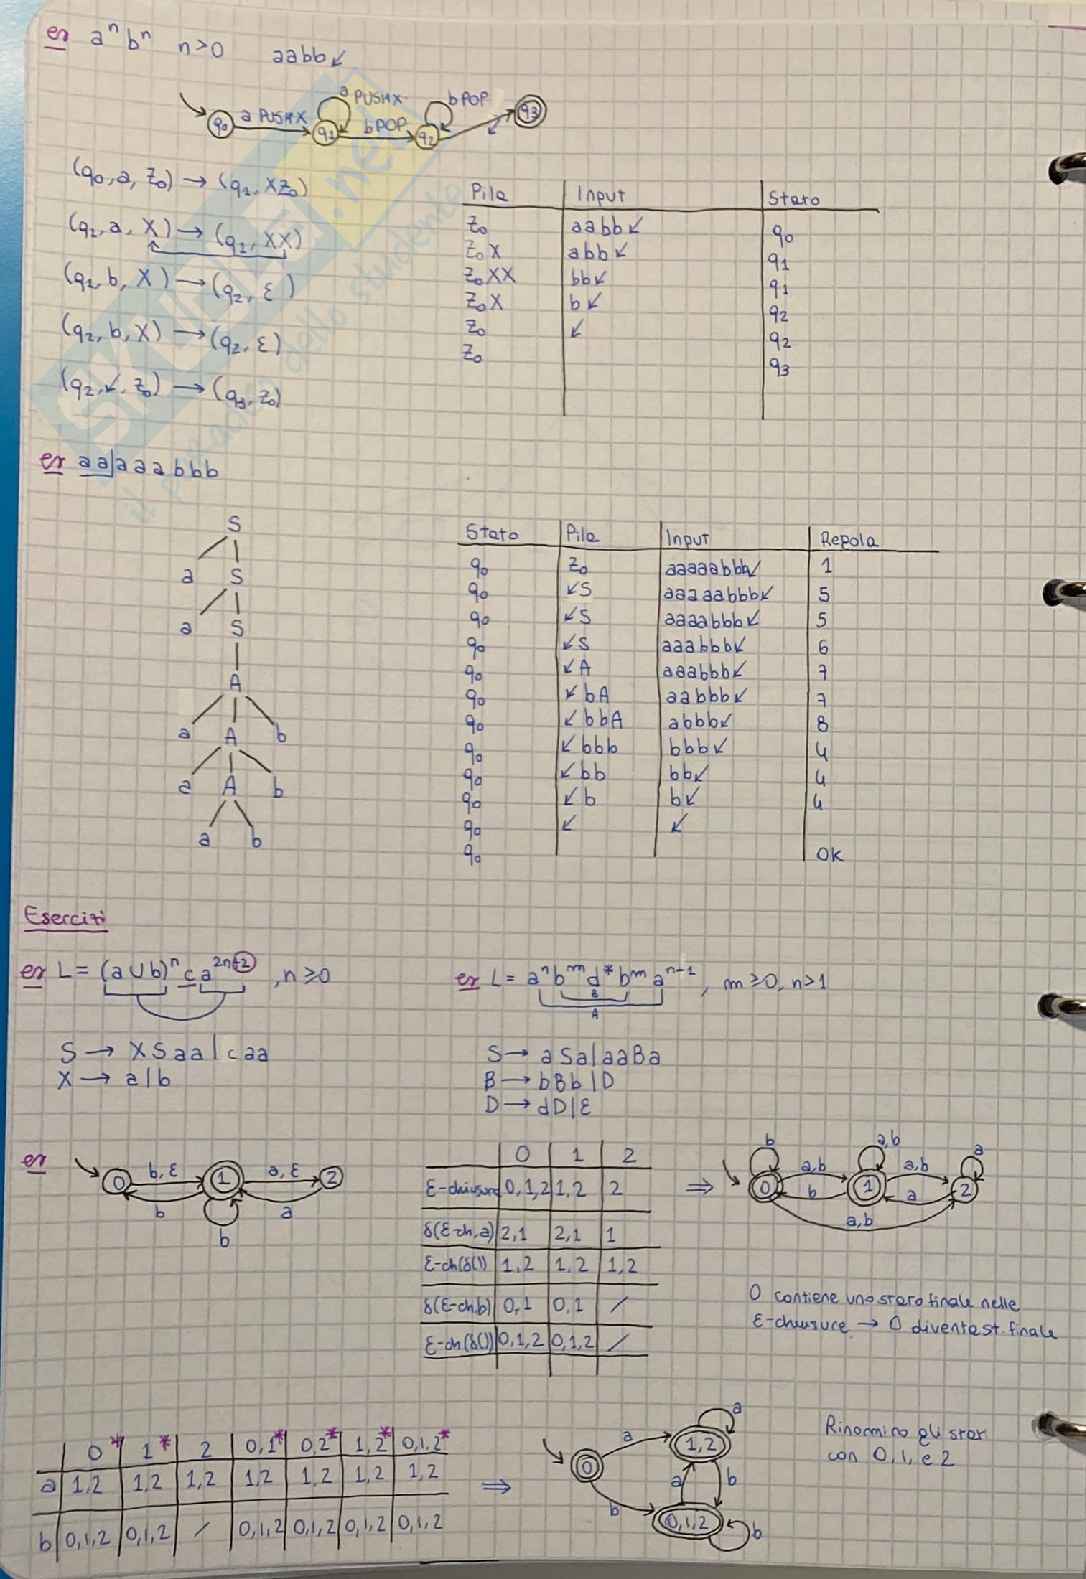 es aⁿbⁿ n>0 aabb↙
q₀ a PUSHX q₁ a PUSHX bPOP q₂ bPOP ↙ q₃
(q₀, a, z₀) → (q₁, Xz₀)
(q₁, a, X) → (q₁, XX)
(q₁, b, X) → (q₂, ε)
(q₂, b, X) → (q₂, ε)
(q₂, ↙, z₀) → (q₃, z₀)
Pila Input Stato
z₀ aabb↙ q₀
z₀X abb↙ q₁
z₀XX bb↙ q₁
z₀X b↙ q₂
z₀ ↙ q₂
z₀ q₃
es aa|aaabbb
S
a S
a S
A
a A b
a A b
a b
Stato Pila Input Regola
q₀ z₀ aaaaabbb↙ 1
q₀ ↙S aaaaabbb↙ 5
q₀ ↙S aaaabbb↙ 5
q₀ ↙S aaabbb↙ 6
q₀ ↙A aaabbb↙ 7
q₀ ↙bA aabbb↙ 7
q₀ ↙bbA abbb↙ 8
q₀ ↙bbb bbb↙ 4
q₀ ↙bb bb↙ 4
q₀ ↙b b↙ 4
q₀ ↙ ↙
q₀ OK
Esercizi
es L = (a∪b)ⁿ c a²ⁿ⁺², n≥0
S → XSaa | caa
X → a|b
es L = aⁿbᵐd*bᵐaⁿ⁻¹, m≥0, n>1
B
A
S → aSa|aaBa
B → bBb|D
D → dD|ε
es
0 b,ε 1 a,ε 2
b a
b
0 1 2
ε-chiusure 0,1,2 1,2 2
δ(ε-ch,a) 2,1 2,1 1
ε-ch(δ()) 1,2 1,2 1,2
δ(ε-ch,b) 0,1 0,1 /
ε-ch(δ()) 0,1,2 0,1,2 /
⇒
b a,b a
0 a,b 1 a,b 2
b a
a,b
0 contiene uno stato finale nelle
ε-chiusure → 0 diventa st. finale
0* 1* 2 0,1* 0,2* 1,2* 0,1,2*
a 1,2 1,2 1,2 1,2 1,2 1,2 1,2
b 0,1,2 0,1,2 / 0,1,2 0,1,2 0,1,2 0,1,2
⇒
a
0 a 1,2
a b
b 0,1,2 b
Rinomino gli stati
con 0, 1, e 2